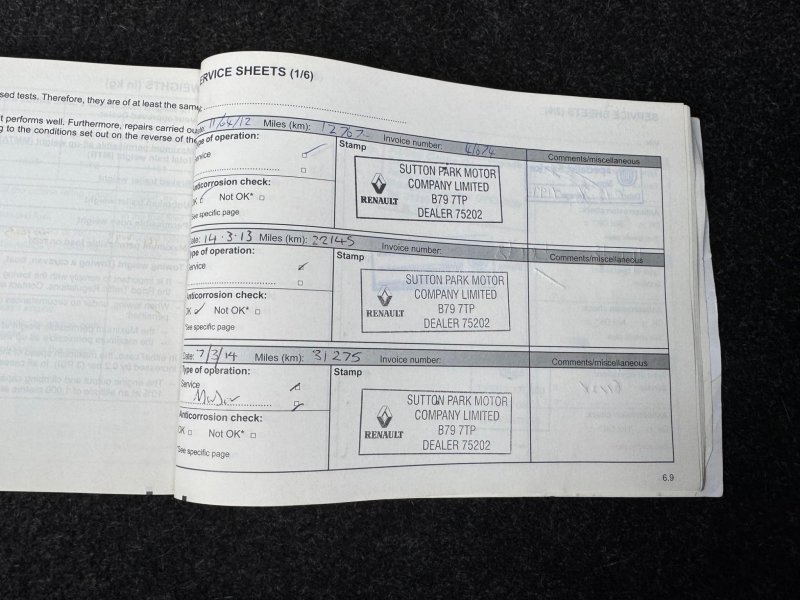 sed tests. Therefore, they are of at least the same
t performs well. Furthermore, repairs carried ou
g to the conditions set out on the reverse of the
ERVICE SHEETS (1/6)
11/04/12 Miles (km): Invoice number:
Type of operation:
Service
Stamp
Comments/miscellaneous
Anticorrosion check:
OK Not OK*
*See specific page
RENAULT
SUTTON PARK MOTOR
COMPANY LIMITED
B79 7TP
DEALER 75202
Date: 14.3.13 Miles (km): 22145 Invoice number:
Type of operation:
Service
Stamp
Comments/miscellaneous
Anticorrosion check:
OK ✓ Not OK*
*See specific page
RENAULT
SUTTON PARK MOTOR
COMPANY LIMITED
B79 7TP
DEALER 75202
Date: 7/3/14 Miles (km): 31275 Invoice number:
Type of operation:
Service
Stamp
Comments/miscellaneous
Anticorrosion check:
OK Not OK*
*See specific page
RENAULT
SUTTON PARK MOTOR
COMPANY LIMITED
B79 7TP
DEALER 75202
6.9